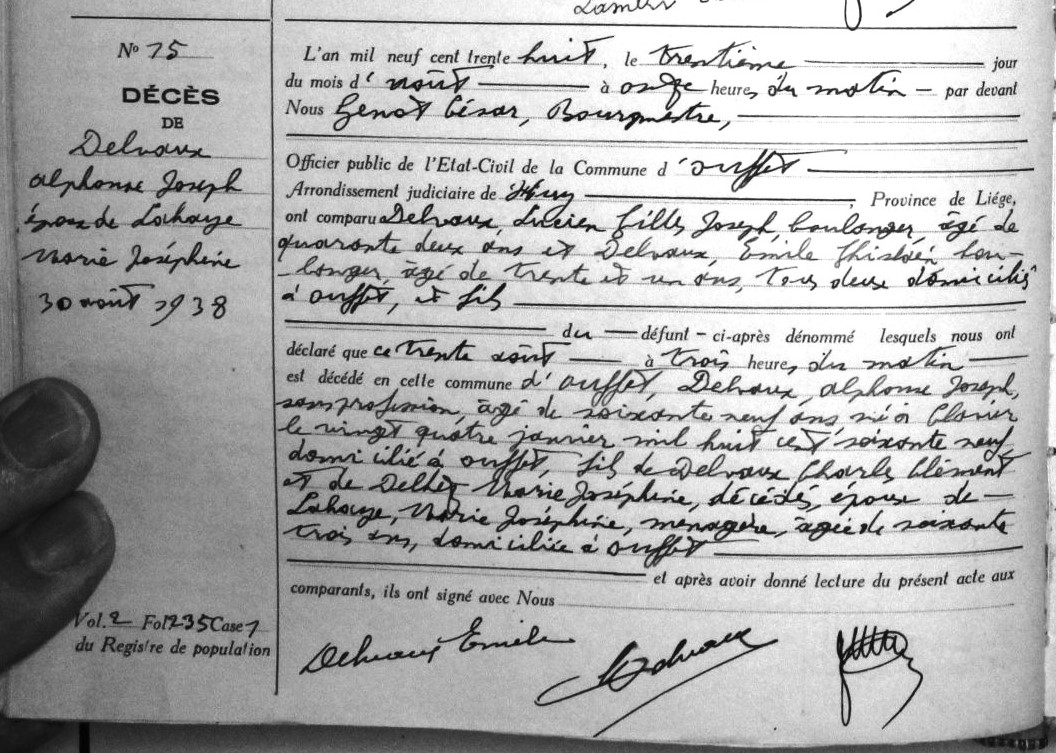 Lambert
Nº 75
DÉCÈS
DE
Delvaux
Alphonse Joseph
époux de Lahaye
Marie Joséphine
30 août 1938
Vol. 2 Fol 235 Case 7
du Registre de population
L'an mil neuf cent trente huit, le trentième jour
du mois d' août à onze heures du matin — par devant
Nous Genot César, Bourgmestre,
Officier public de l'Etat-Civil de la Commune d 'Ouffet
Arrondissement judiciaire de Huy, Province de Liége,
ont comparu Delvaux, Lucien Gilles Joseph, boulanger, âgé de
quarante deux ans et Delvaux, Emile Ghislain, bou-
-langer, âgé de trente et un ans, tous deux domiciliés
à Ouffet, et fils
du — défunt — ci-après dénommé lesquels nous ont
déclaré que ce trente août — à trois heures du matin
est décédé en cette commune d'Ouffet, Delvaux, Alphonse Joseph,
sans profession, âgé de soixante neuf ans né à Clavier
le vingt quatre janvier mil huit cent soixante neuf
domicilié à Ouffet, fils de Delvaux Charles Clément
et de Marie Joséphine, décédés, époux de —
Lahaye, Marie Joséphine, ménagère, âgée de soixante
trois ans, domiciliée à Ouffet
et après avoir donné lecture du présent acte aux
comparants, ils ont signé avec Nous
Delvaux Emile
Delvaux